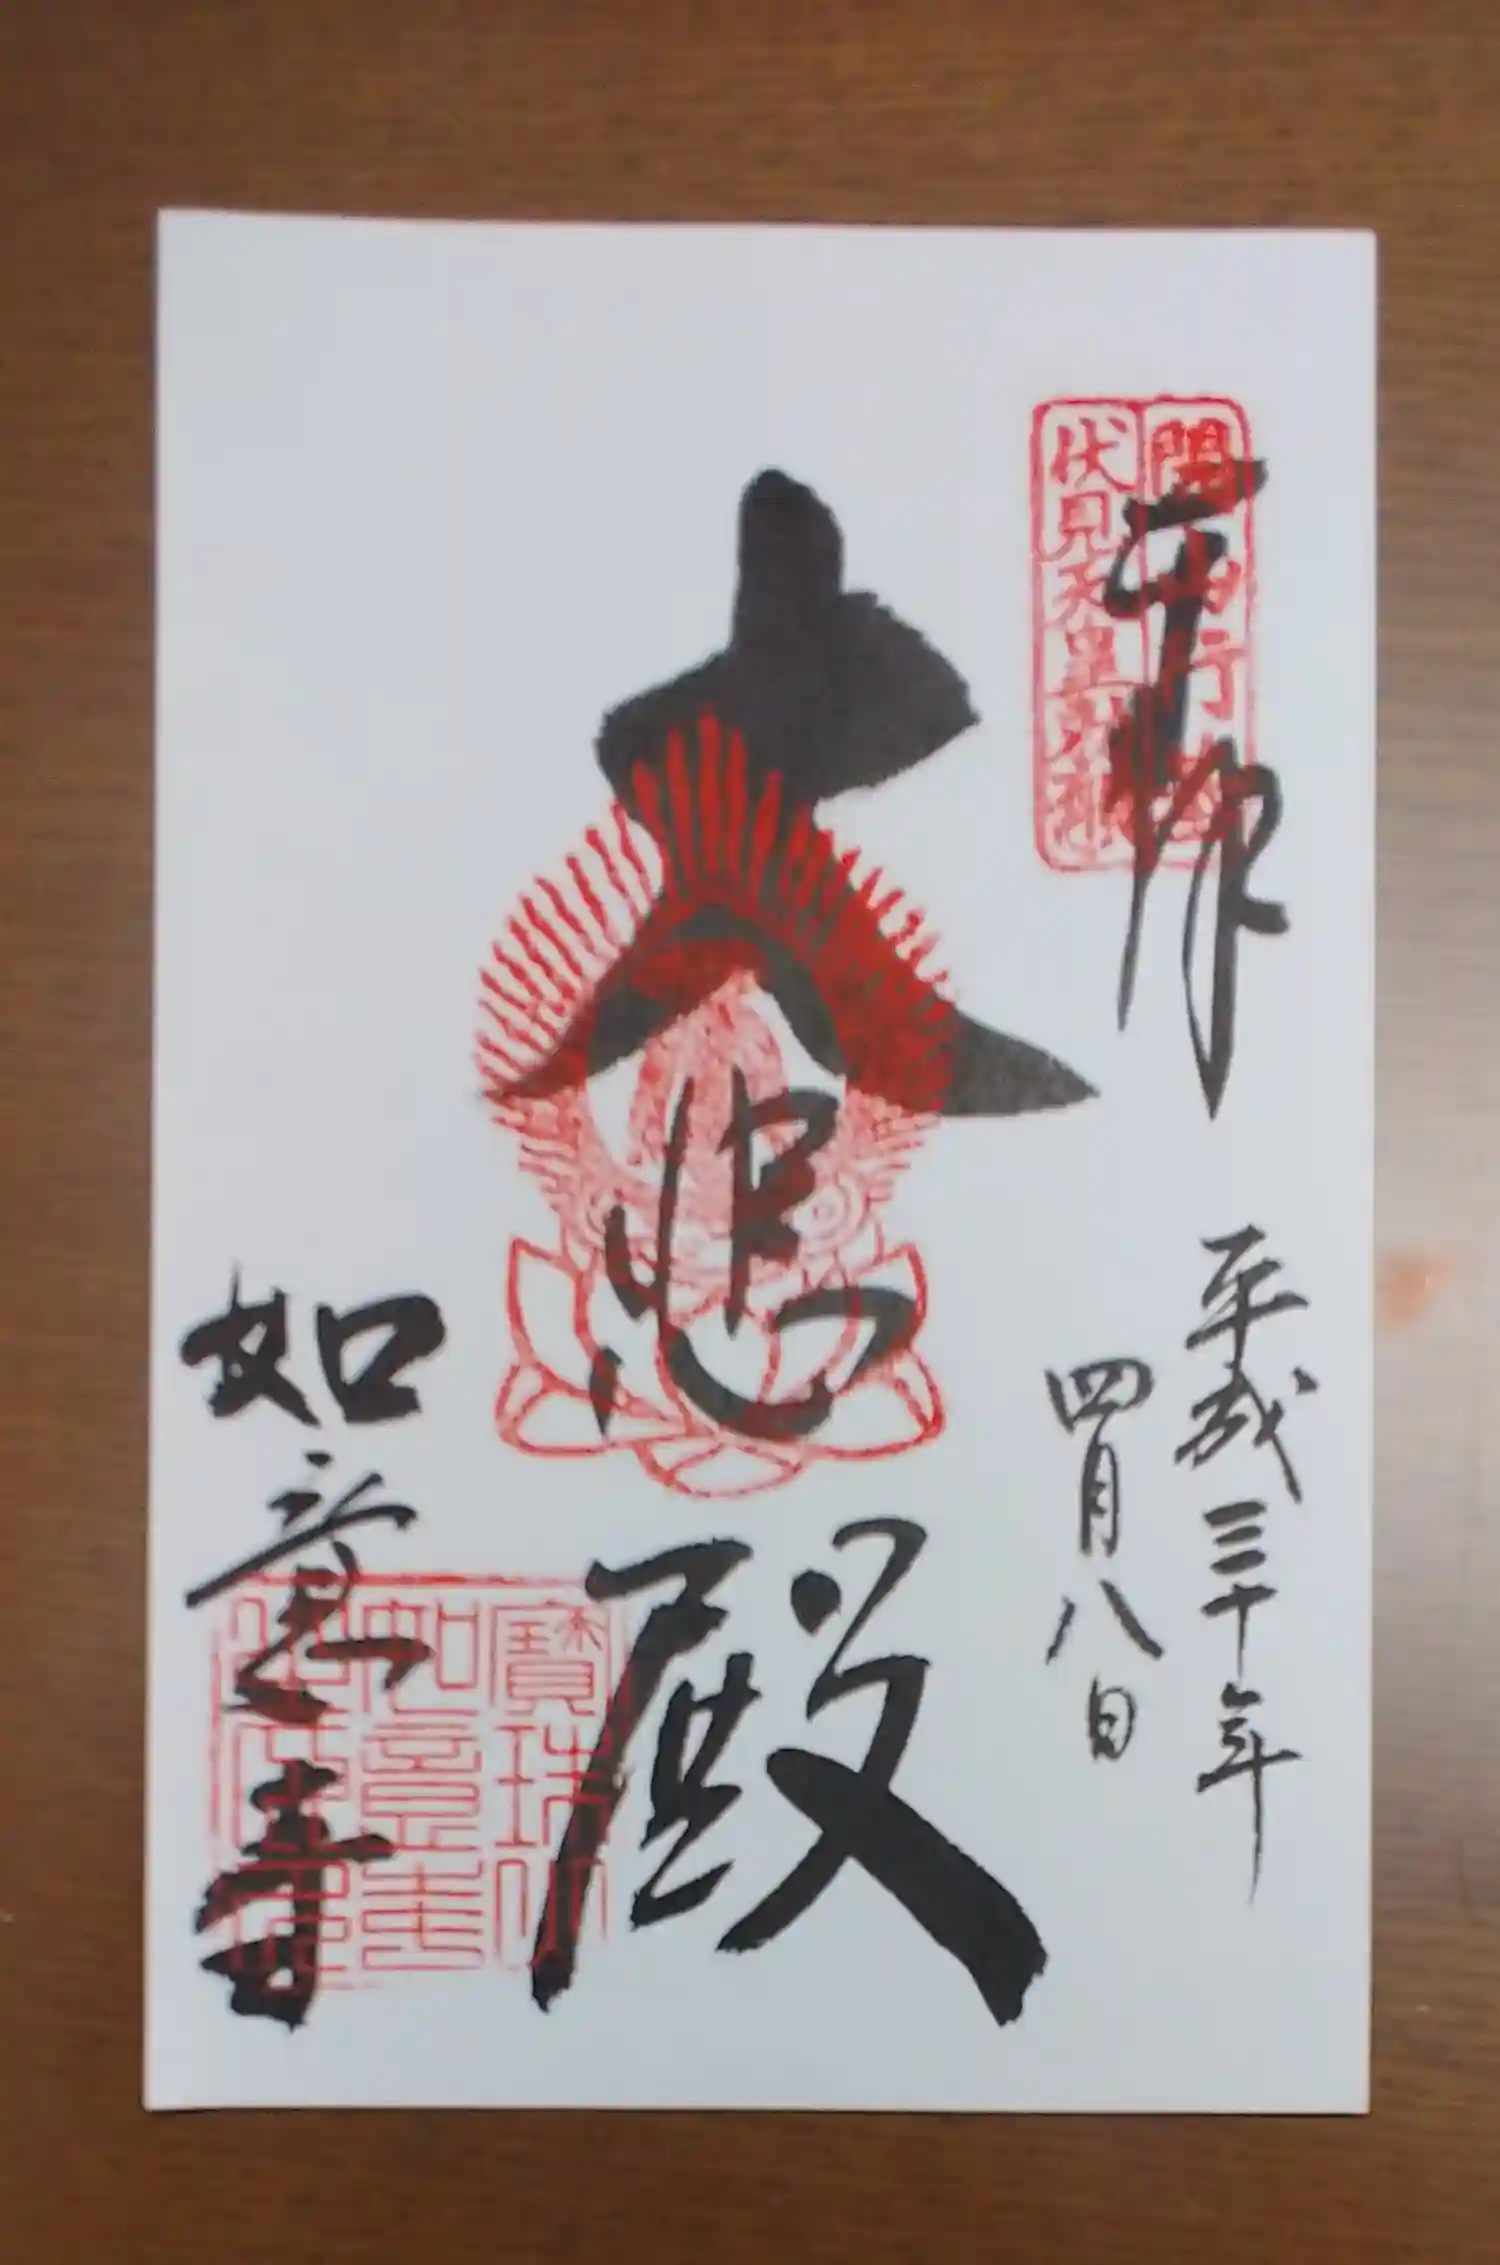 奉拝
伏見天皇勅願
平成三十年
四月八日
大悲殿
如意寺